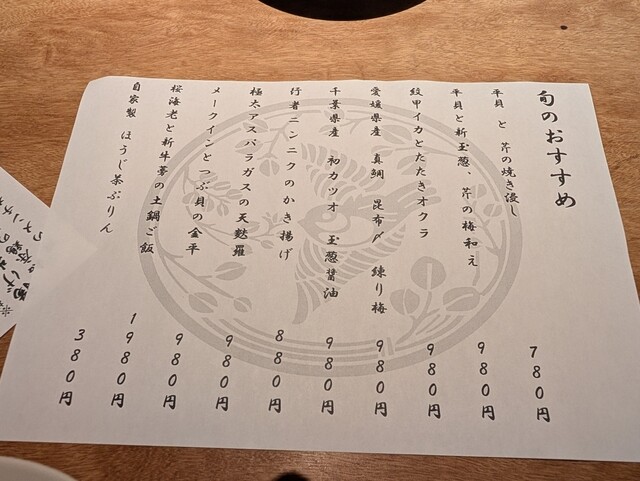 旬のおすすめ
平貝 と 芹の焼き浸し 780円
平貝と新玉葱、芹の梅和え 980円
紋甲イカとたたきオクラ 980円
愛媛県産 真鯛 昆布〆 練り梅 980円
千葉県産 初カツオ 玉葱醤油 980円
行者ニンニクのかき揚げ 880円
極太アスパラガスの天麩羅 980円
メークインとつぶ貝の金平 980円
桜海老と新牛蒡の土鍋ご飯 1980円
自家製 ほうじ茶ぷりん 380円